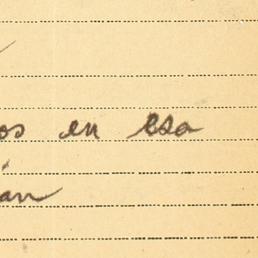 os en esa
án